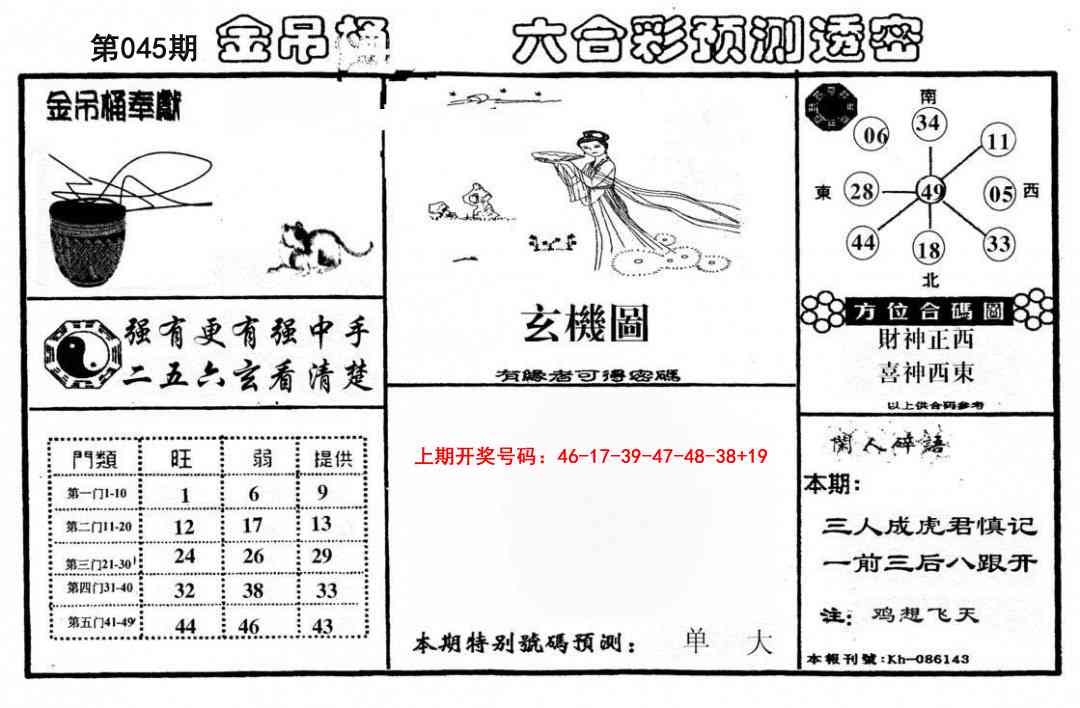 第045期 金吊桶 六合彩预测透密
金吊桶奉獻
强有更有强中手
二五六玄看清楚
門類 旺 弱 提供
第一门1-10 1 6 9
第二门11-20 12 17 13
第三门21-30 24 26 29
第四门31-40 32 38 33
第五门41-49 44 46 43
玄機圖
有緣者可得密碼
上期开奖号码：46-17-39-47-48-38+19
本期特别號碼预测： 单 大
南
06 34 11
東 28 49 05 西
44 18 33
北
方位合碼圖
財神正西
喜神西東
以上供合码参考
閑人碎語
本期：
三人成虎君慎记
一前三后八跟开
注：鸡想飞天
本報刊號:Kh-086143